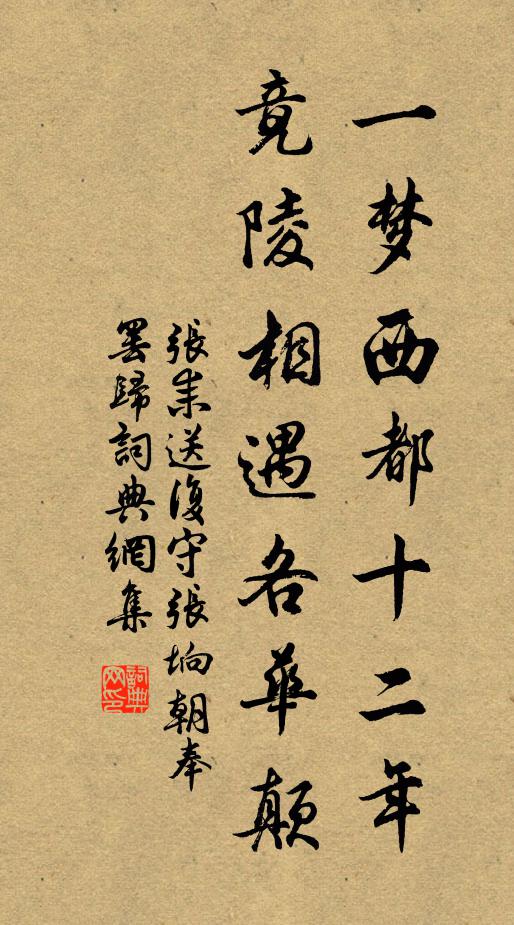 一梦西都十二年
竟陵相遇各華顛
張耒送復守張垧朝奉
罢歸詞典網集
詞典
网印